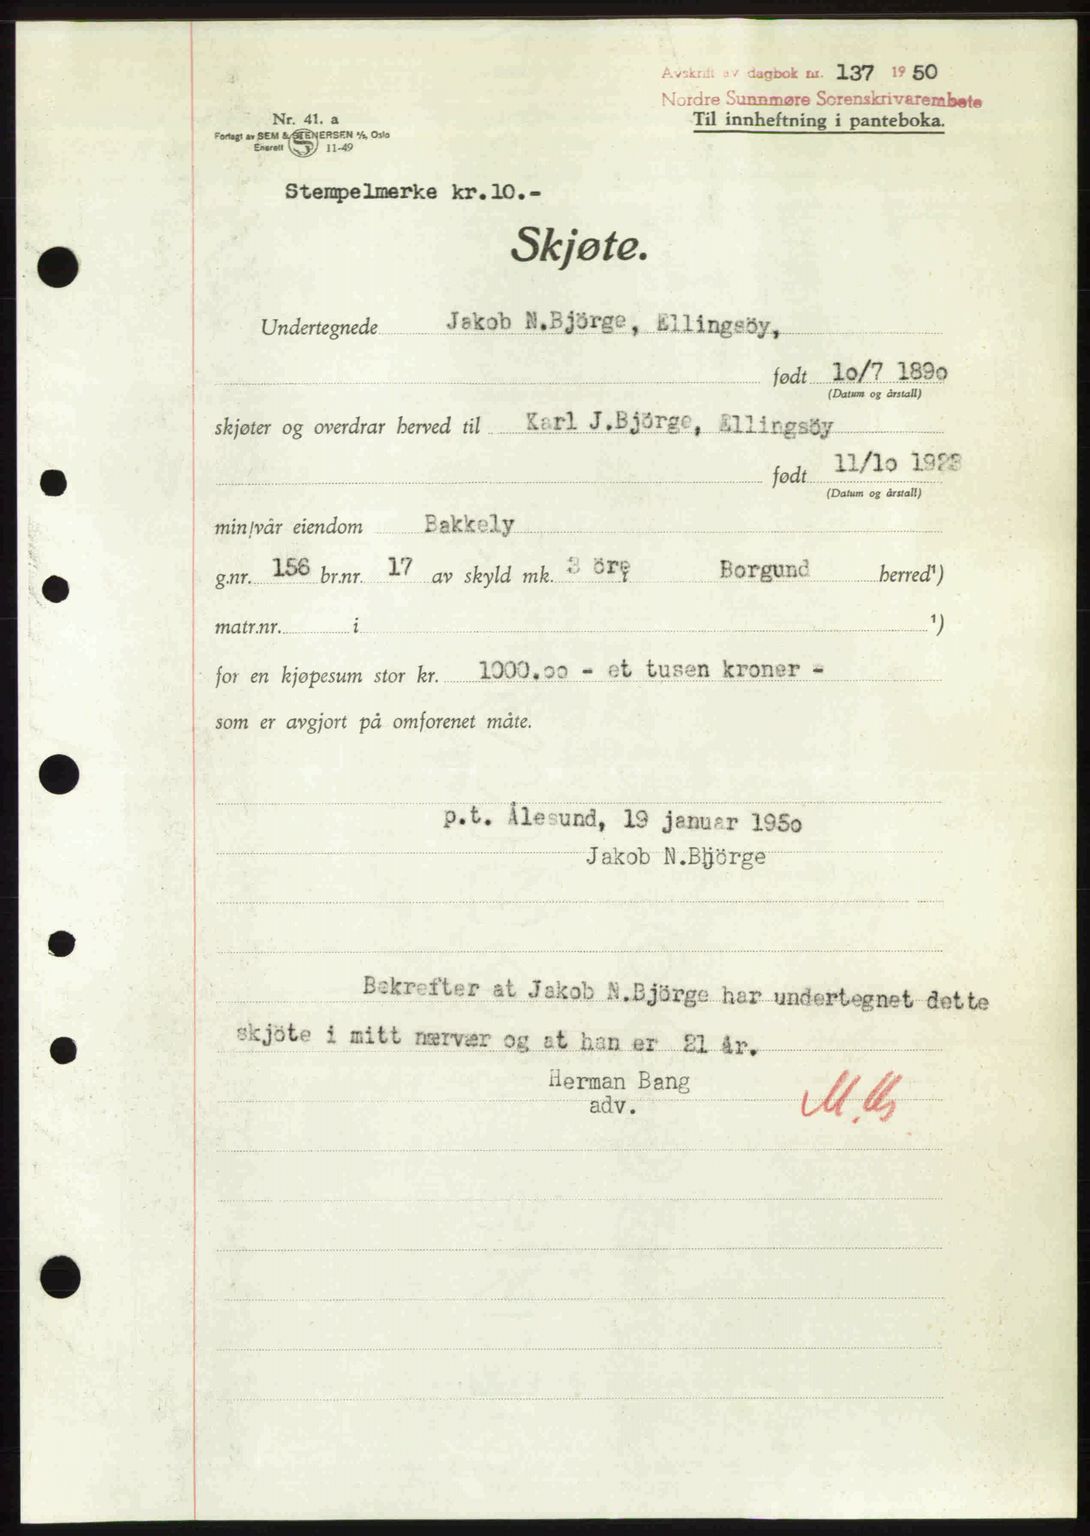 Avskrift av dagbok nr. 137 1950
Nordre Sunnmøre Sorenskrivarembete
Til innheftning i panteboka.
Nr. 41. a
Forlagt av SEM & STENERSEN A/S, Oslo
Enerett S 11-49
Stempelmerke kr.10.-
Skjøte.
Undertegnede Jakob N.Björge, Ellingsöy,
født 1o/7 189o
(Datum og årstall)
skjøter og overdrar herved til Karl J.Björge, Ellingsöy
født 11/1o 1923
(Datum og årstall)
min/vår eiendom Bakkely
g.nr. 156 br.nr. 17 av skyld mk. 3 öre Borgund herred¹)
matr.nr. i ¹)
for en kjøpesum stor kr. 1000.oo - et tusen kroner -
som er avgjort på omforenet måte.
p.t. Ålesund, 19 januar 195o
Jakob N.Björge
Bekrefter at Jakob N.Björge har undertegnet dette
skjöte i mitt nærvær og at han er 21 år.
Herman Bang
adv.